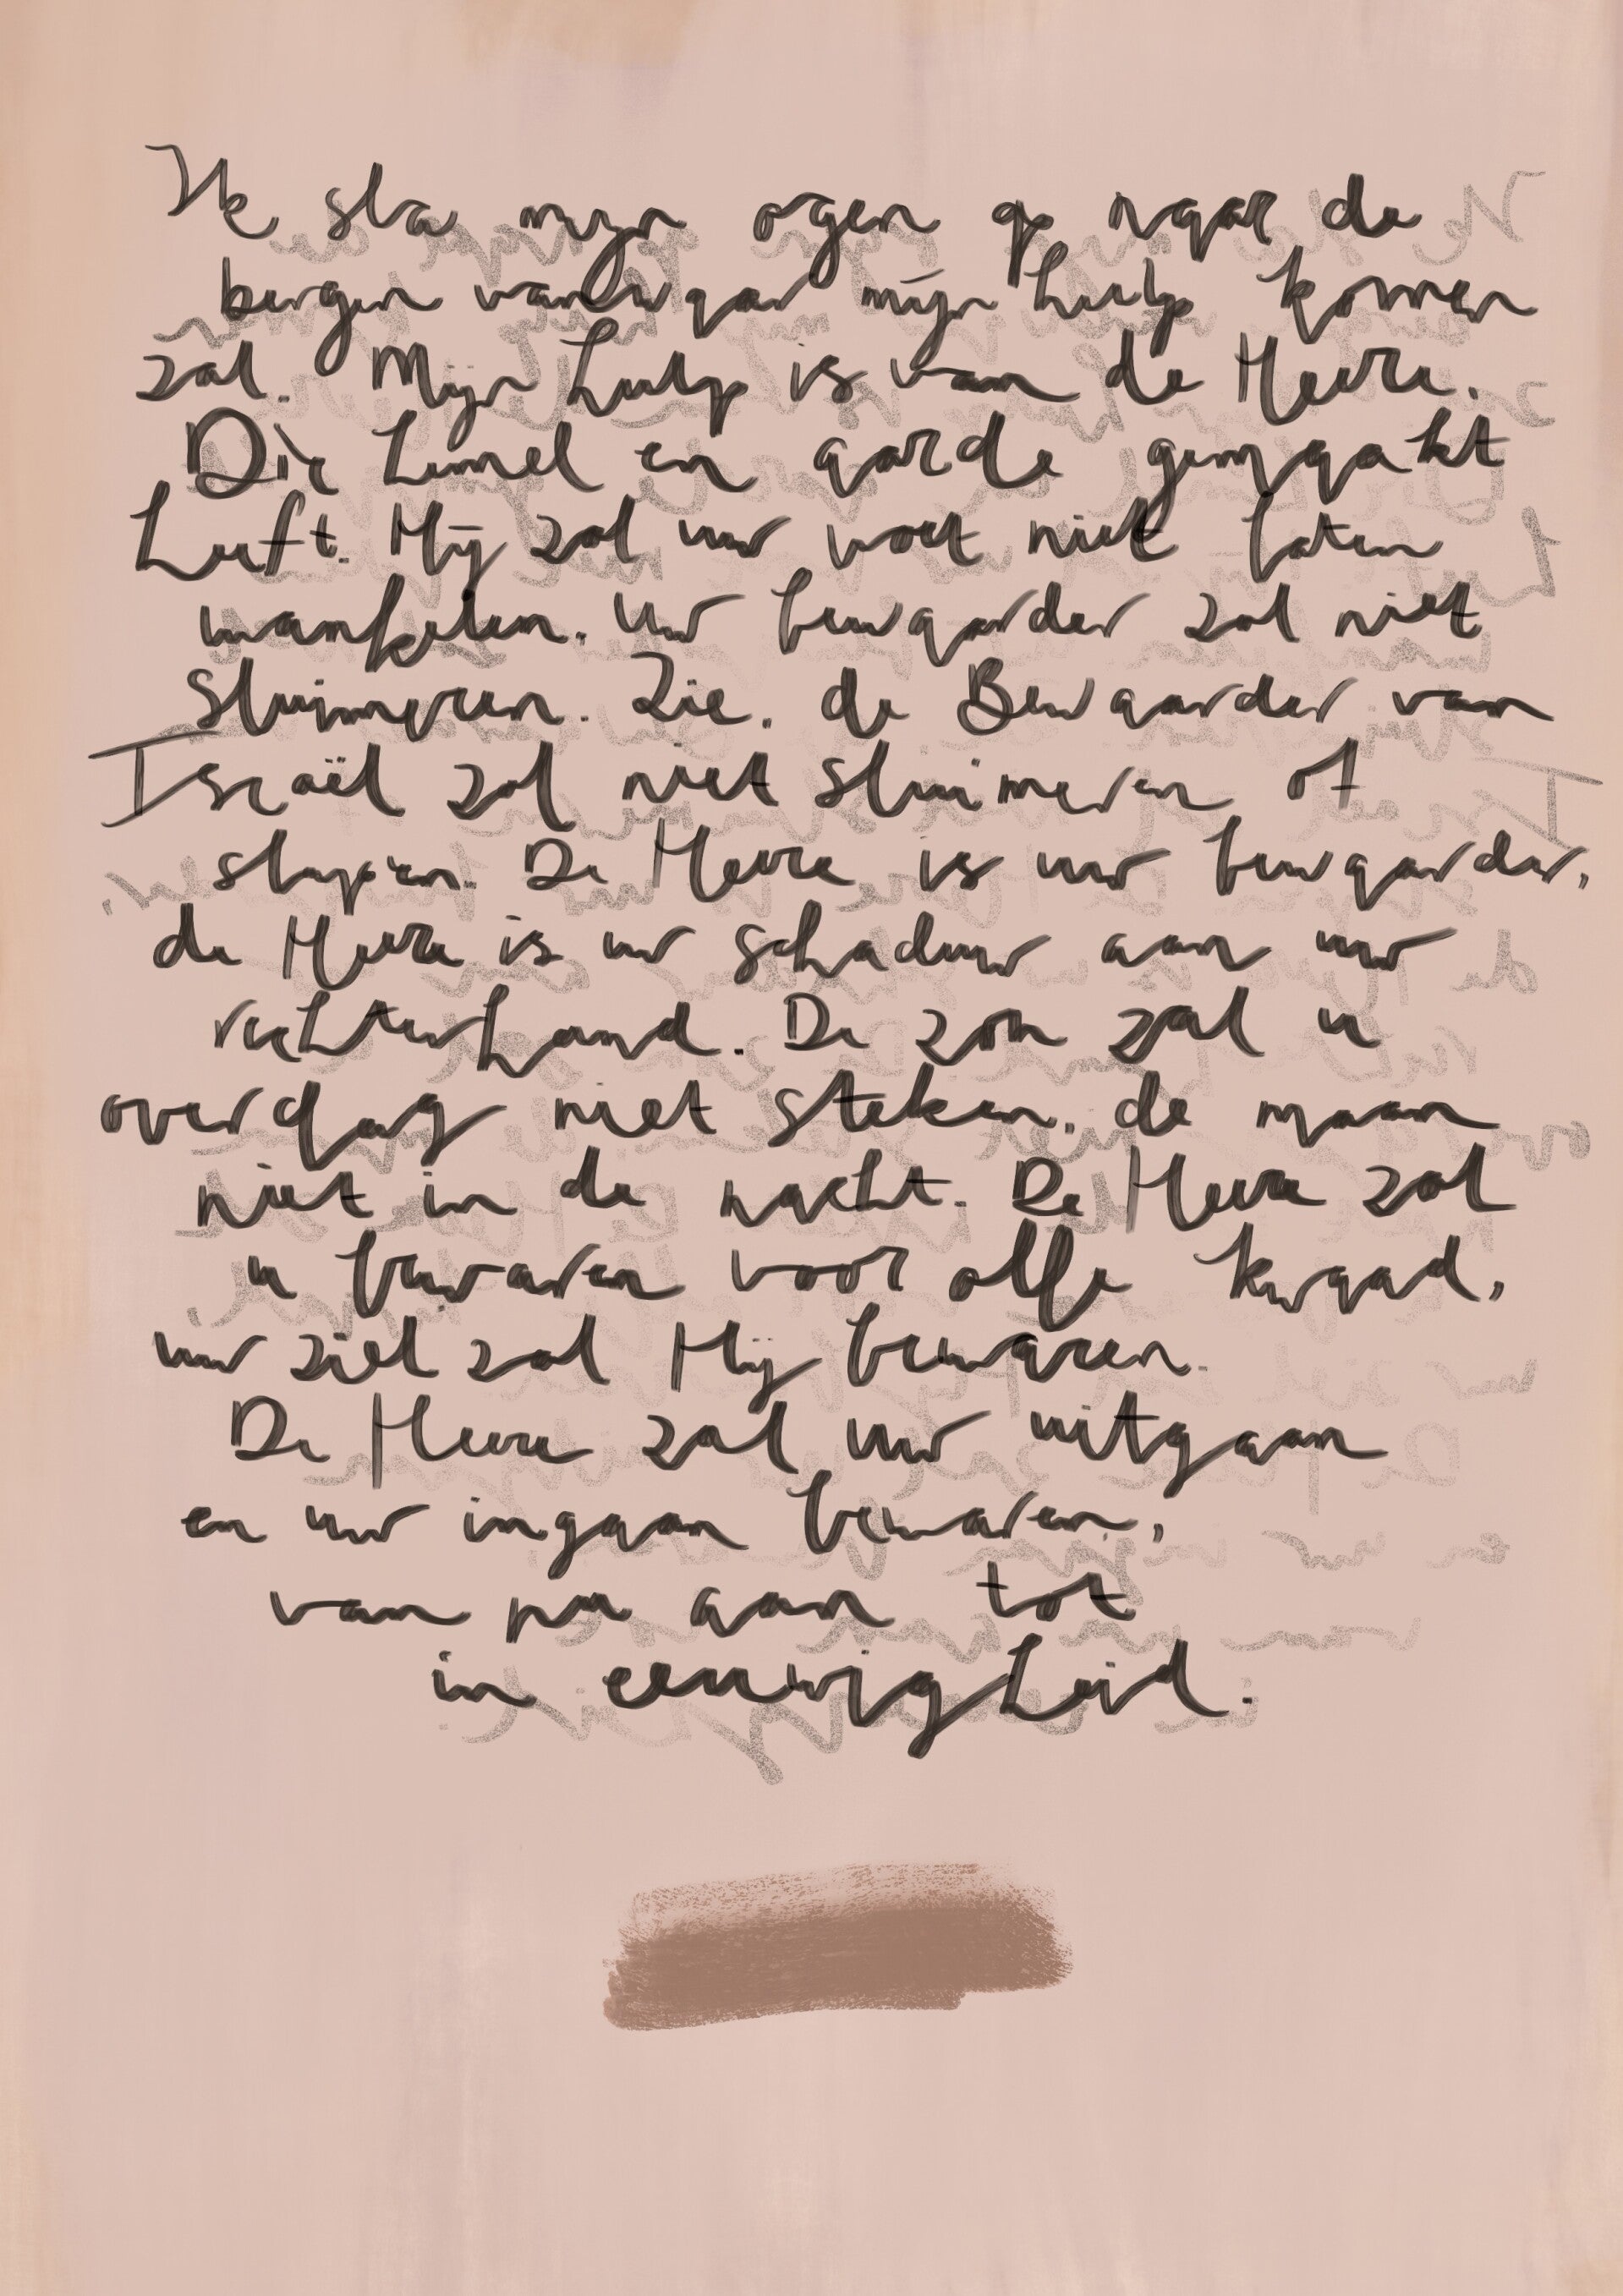 Ik sla mijn ogen op naar de
bergen vanwaar mijn hulp komen
zal. Mijn hulp is van de Heere.
Die hemel en aarde gemaakt
heeft. Hij zal uw voet niet laten
wankelen. Uw bewaarder zal niet
sluimeren. Zie, de Bewaarder van
Israël zal niet sluimeren of
slapen. De Heere is uw bewaarder,
de Heere is uw schaduw aan uw
rechterhand. De zon zal u
overdag niet steken, de maan
niet in de nacht. De Heere zal
u bewaren voor alle kwaad,
uw ziel zal Hij bewaren.
De Heere zal uw uitgaan
en uw ingaan bewaren,
van nu aan tot
in eeuwigheid.